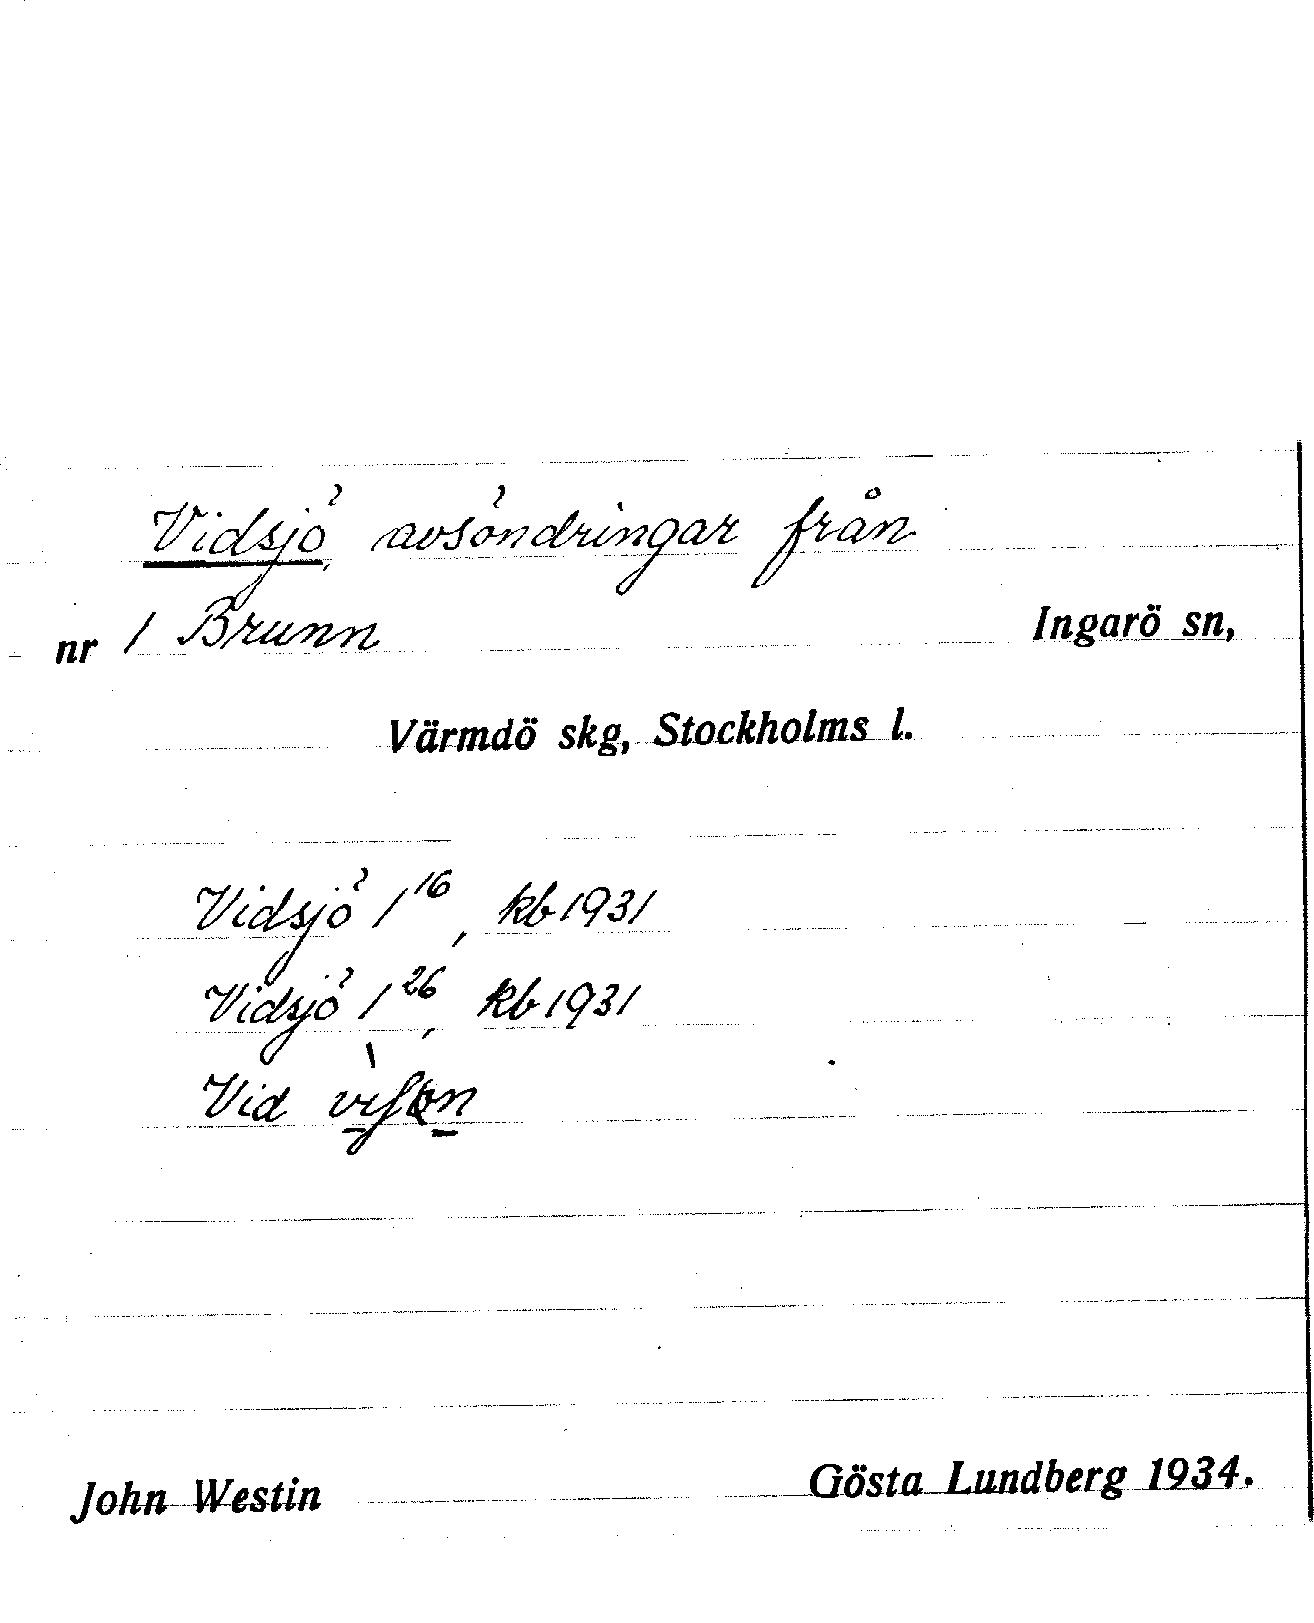 Vidsjö, avsöndringar från
nr 1 Brunn Ingarö sn,
Värmdö skg, Stockholms l.
Vidsjö 1¹⁶, kb 1931
Vidsjö 1²⁶, kb 1931
Vid
John Westin Gösta Lundberg 1934.